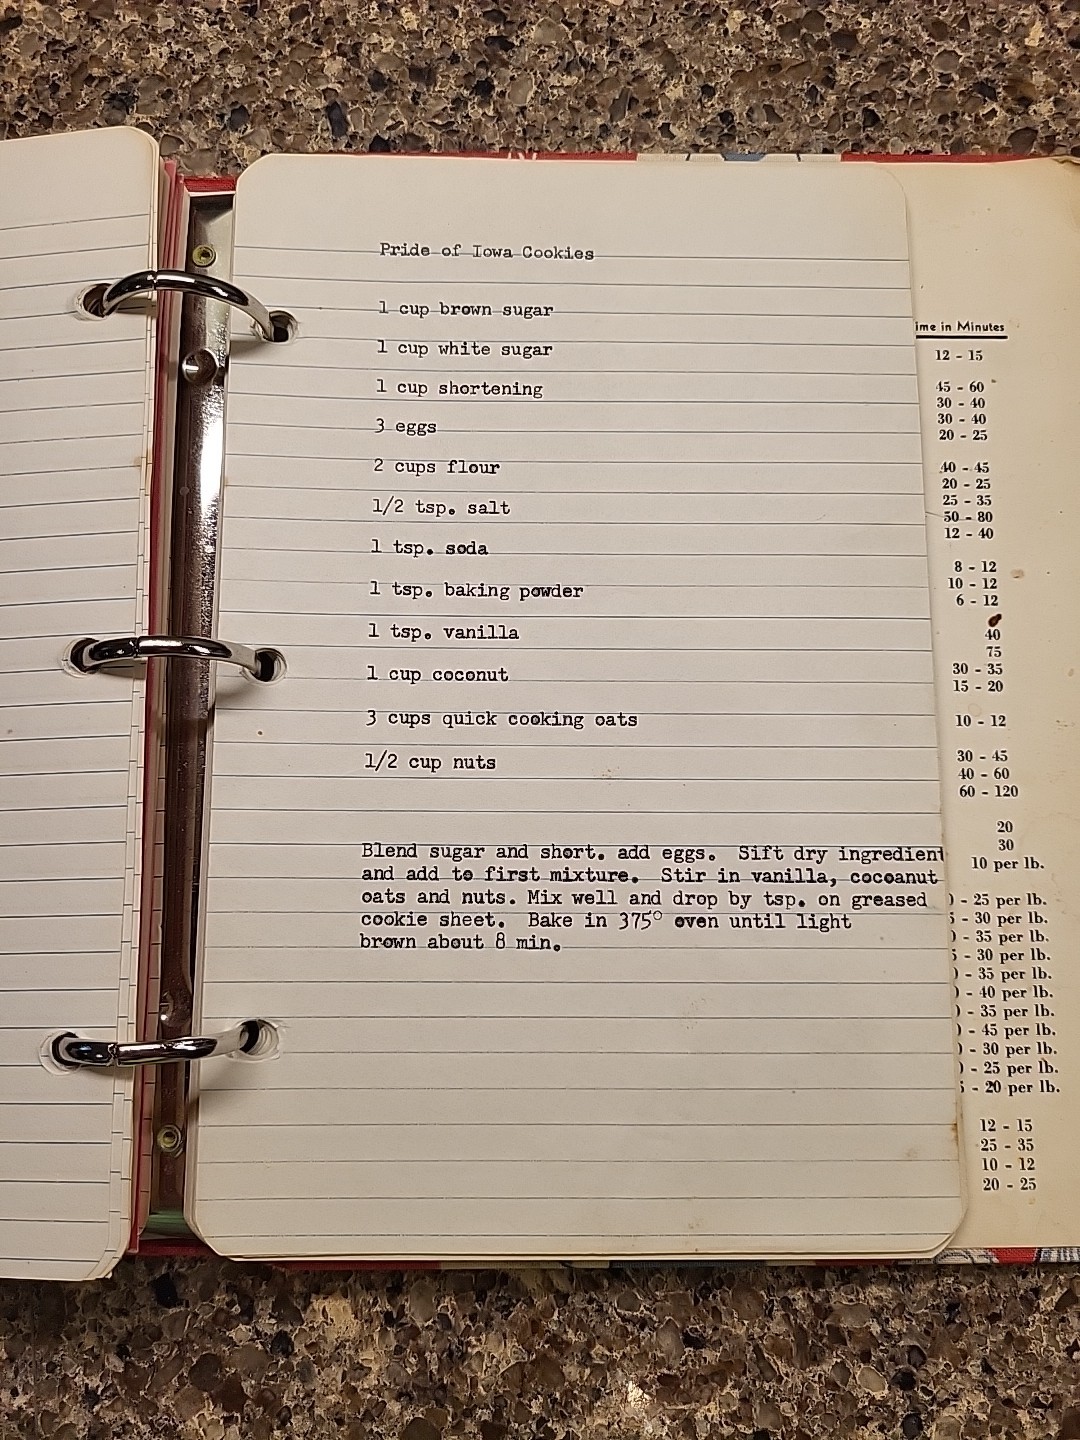 Pride of Iowa Cookies
1 cup brown sugar
1 cup white sugar
1 cup shortening
3 eggs
2 cups flour
1/2 tsp. salt
1 tsp. soda
1 tsp. baking powder
1 tsp. vanilla
1 cup coconut
3 cups quick cooking oats
1/2 cup nuts
Blend sugar and short. add eggs.  Sift dry ingredient
and add to first mixture.  Stir in vanilla, cocoanut
oats and nuts. Mix well and drop by tsp. on greased
cookie sheet.  Bake in 375° oven until light
brown about 8 min.
ime in Minutes
12 - 15
45 - 60
30 - 40
30 - 40
20 - 25
40 - 45
20 - 25
25 - 35
50 - 80
12 - 40
8 - 12
10 - 12
6 - 12
40
75
30 - 35
15 - 20
10 - 12
30 - 45
40 - 60
60 - 120
20
30
10 per lb.
- 25 per lb.
- 30 per lb.
- 35 per lb.
- 30 per lb.
- 35 per lb.
- 40 per lb.
- 35 per lb.
- 45 per lb.
- 30 per lb.
- 25 per lb.
- 20 per lb.
12 - 15
25 - 35
10 - 12
20 - 25